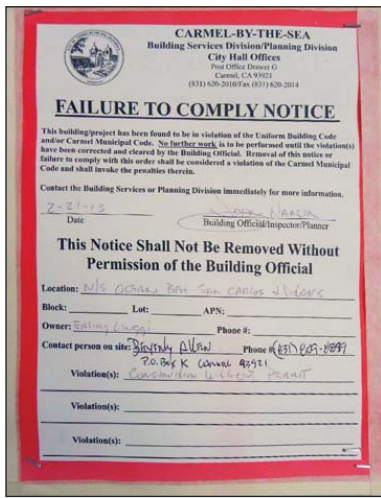 CARMEL-BY-THE-SEA
Building Services Division/Planning Division
City Hall Offices
Post Office Drawer G
Carmel, CA 93921
(831) 620-2010/Fax (831) 620-2014
FAILURE TO COMPLY NOTICE
This building/project has been found to be in violation of the Uniform Building Code
and/or Carmel Municipal Code. No further work is to be performed until the violation(s)
have been corrected and cleared by the Building Official. Removal of this notice or
failure to comply with this order shall be considered a violation of the Carmel Municipal
Code and shall invoke the penalties therein.
Contact the Building Services or Planning Division immediately for more information.
2-21-13
Date Building Official/Inspector/Planner
This Notice Shall Not Be Removed Without
Permission of the Building Official
Location: N/S OCEAN BTW SAN CARLOS
Block: Lot: APN:
Owner: Phone #:
Contact person on site: Phone # (831)
P.O. Box K CARMEL 93921
Violation(s): PERMIT
Violation(s):
Violation(s):